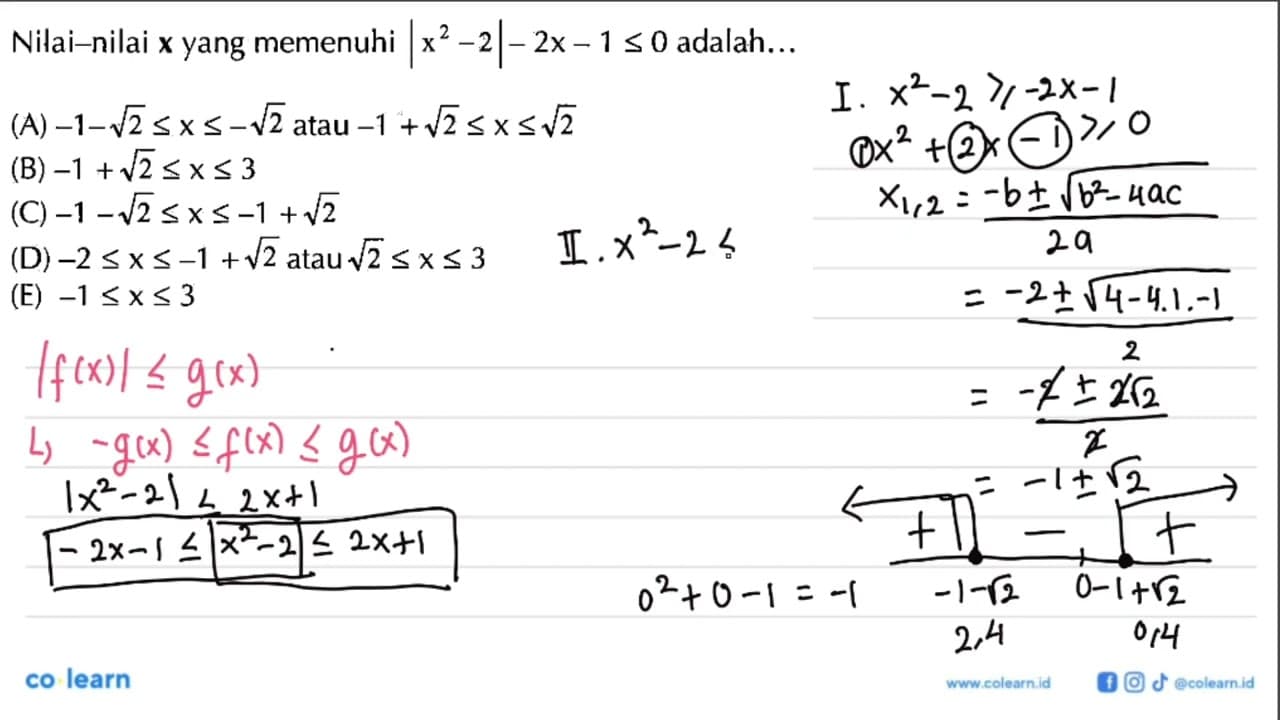 Nilai–nilai x yang memenuhi |x² – 2| – 2x – 1 ≤ 0 adalah...
(A) –1–√2 ≤ x ≤ –√2 atau –1 + √2 ≤ x ≤ √2
(B) –1 + √2 ≤ x ≤ 3
(C) –1 – √2 ≤ x ≤ –1 + √2
(D) –2 ≤ x ≤ –1 + √2 atau √2 ≤ x ≤ 3
(E) –1 ≤ x ≤ 3
|f(x)| ≤ g(x)
↳ -g(x) ≤ f(x) ≤ g(x)
|x²-2| ≤ 2x+1
-2x-1 ≤ x²-2 ≤ 2x+1
I. x²-2 ≥ -2x-1
1x² + 2x -1 ≥ 0
x1,2 = -b ± √b²-4ac
2a
= -2 ± √4-4.1.-1
2
= -2 ± 2√2
2
= -1 ± √2
+ - +
-1-√2 0 -1+√2
2,4 0,4
0²+0-1 = -1
II. x²-2 ≤
co learn
www.colearn.id
@colearn.id